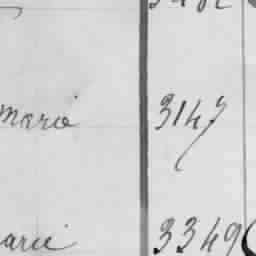 Marie 3147
arie 3349